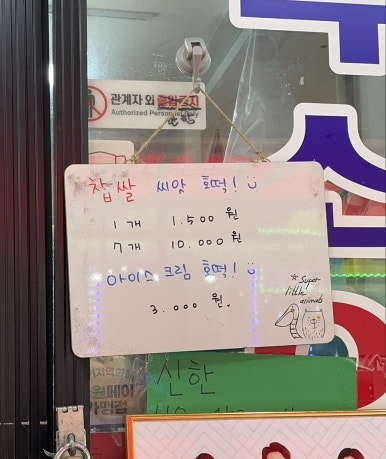 관계자 외
Authorized Personnel Only
찹쌀 씨앗 호떡!
1개 1.500 원
7개 10.000 원
아이스크림 호떡!
3.000 원.
* Super
little
animals
신한